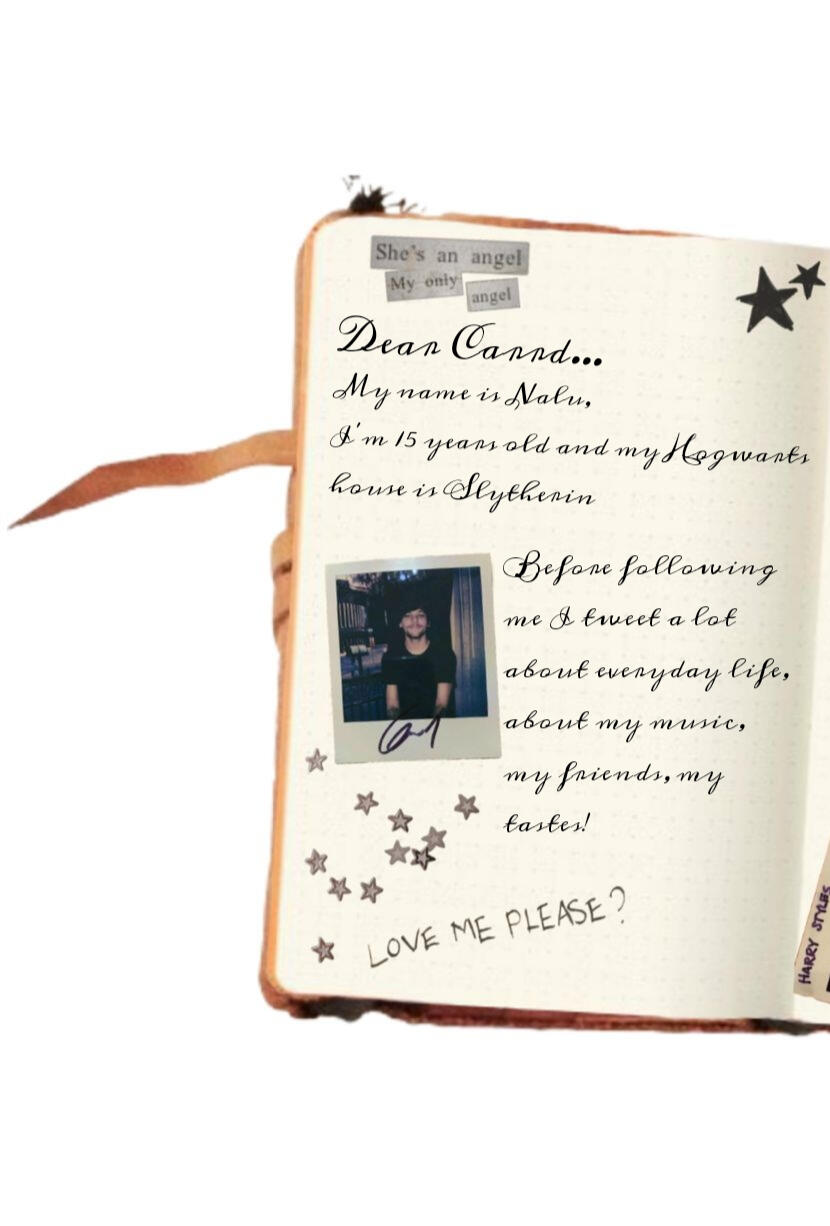 She's an angel
My only
angel
Dear Carrd...
My name is Nalu,
I'm 15 years old and my Hogwarts
house is Slytherin
Before following
me I tweet a lot
about everyday life,
about my music,
my friends, my
tastes!
LOVE ME PLEASE?
HARRY STYLES